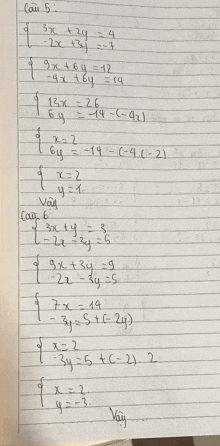 Câu 5:
{ 3x + 2y = 4
-2x + 3y = -7
{ 9x + 6y = 12
-4x + 6y = 14
{ 13x = 26
6y = -14 - (-4x)
{ x = 2
6y = -14 - (-4 (-2)
{ x = 2
y = 1
Vậy
Câu 6
{ 3x + y = 3
-2x - 3y = 5
{ 9x + 3y = 9
-2x - 3y = 5
{ 7x = 14
-3y = 5 + (-2y)
{ x = 2
-3y = 5 + (-2). 2
{ x = 2
y = -3
Vậy